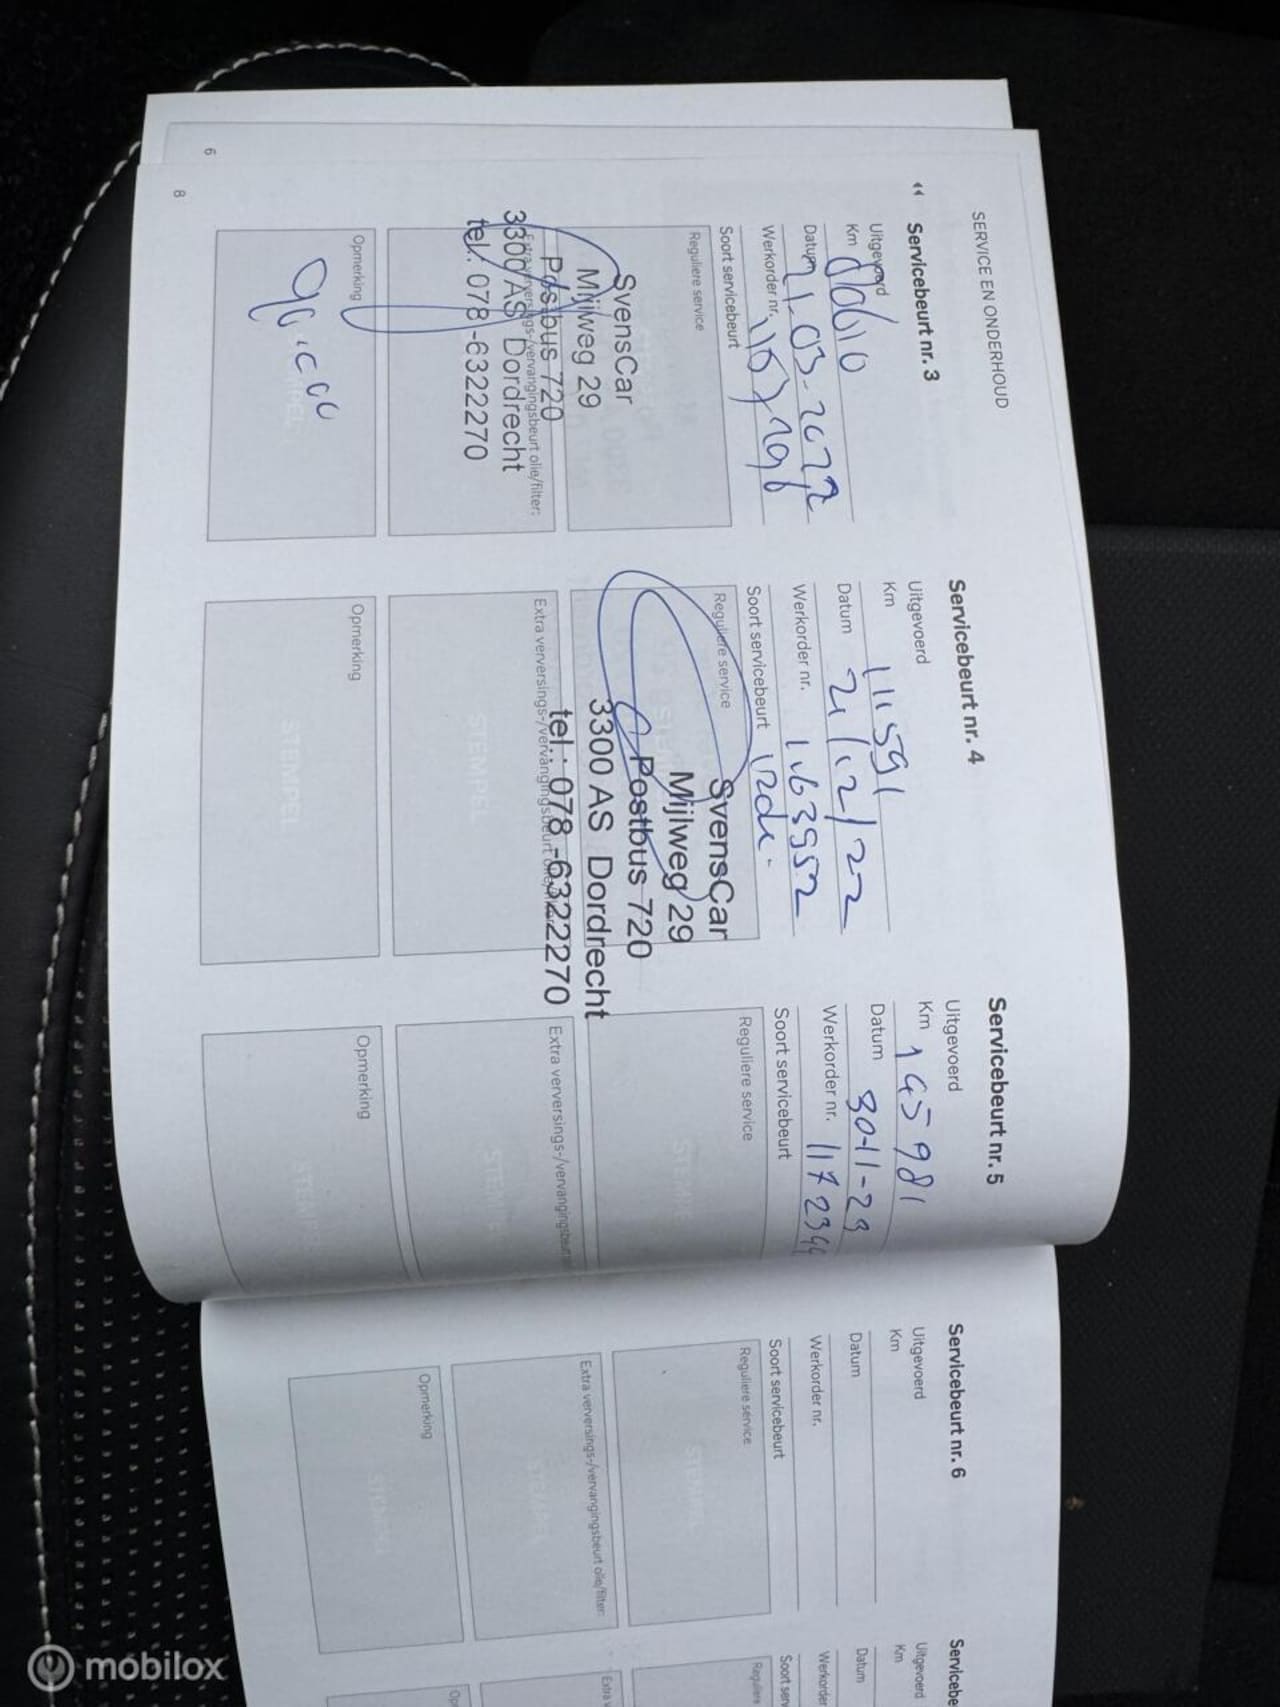 SERVICE EN ONDERHOUD
Servicebeurt nr. 3
Uitgevoerd
Km
Datum 21.03.2022
Werkorder nr.
Soort servicebeurt
Reguliere service
SvensCar
Mijlweg 29
Postbus 720
3300 AS Dordrecht
tel.: 078-6322270
Extra verversings-/vervangingsbeurt olie/filter:
Opmerking
Servicebeurt nr. 4
Uitgevoerd
Km 111591
Datum 21/12/22
Werkorder nr. 1163952
Soort servicebeurt
Reguliere service
SvensCar
Mijlweg 29
Postbus 720
3300 AS Dordrecht
tel.: 078-6322270
Extra verversings-/vervangingsbeurt olie/filter:
STEMPEL
Opmerking
STEMPEL
Servicebeurt nr. 5
Uitgevoerd
Km 145981
Datum 30-11-23
Werkorder nr.
Soort servicebeurt
Reguliere service
Extra verversings-/vervangingsbeurt
Opmerking
6
8
Servicebeurt nr. 6
Uitgevoerd
Km
Datum
Werkorder nr.
Soort servicebeurt
Reguliere service
STEMPEL
Extra verversings-/vervangingsbeurt olie/filter:
STEMPEL
Opmerking
STEMPEL
Servicebe
Uitgevoerd
Km
Datum
Werkorder
Soort serv
Reguliere
Extra v
Op
mobilox